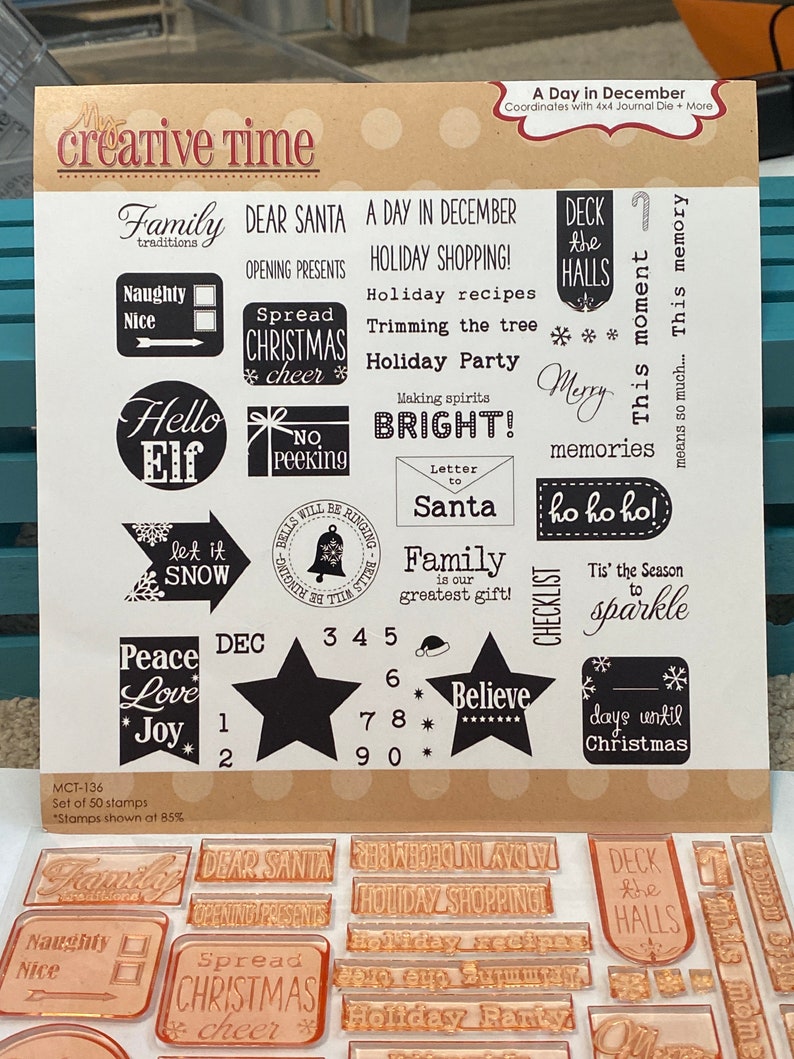 My
creative time
A Day in December
Coordinates with 4x4 Journal Die + More
Family
traditions
DEAR SANTA
OPENING PRESENTS
A DAY IN DECEMBER
HOLIDAY SHOPPING!
Holiday recipes
Trimming the tree
Holiday Party
DECK
the
HALLS
This moment
This memory
means so much...
Naughty
Nice
Spread
CHRISTMAS
cheer
Merry
memories
Hello
Elf
NO
PEEKING
Making spirits
BRIGHT!
Letter
to
Santa
ho ho ho!
let it
SNOW
BELLS WILL BE RINGING - BELLS WILL BE RINGING -
Family
is our
greatest gift!
CHECKLIST
Tis' the Season
to
sparkle
Peace
Love
Joy
DEC
3 4 5
6
1
7 8
2
9 0
Believe
days until
Christmas
MCT-136
Set of 50 stamps
*Stamps shown at 85%
Family
traditions
DEAR SANTA
OPENING PRESENTS
A DAY IN DECEMBER
HOLIDAY SHOPPING!
Holiday recipes
Trimming the tree
Holiday Party
DECK
the
HALLS
Naughty
Nice
Spread
CHRISTMAS
cheer
This mome